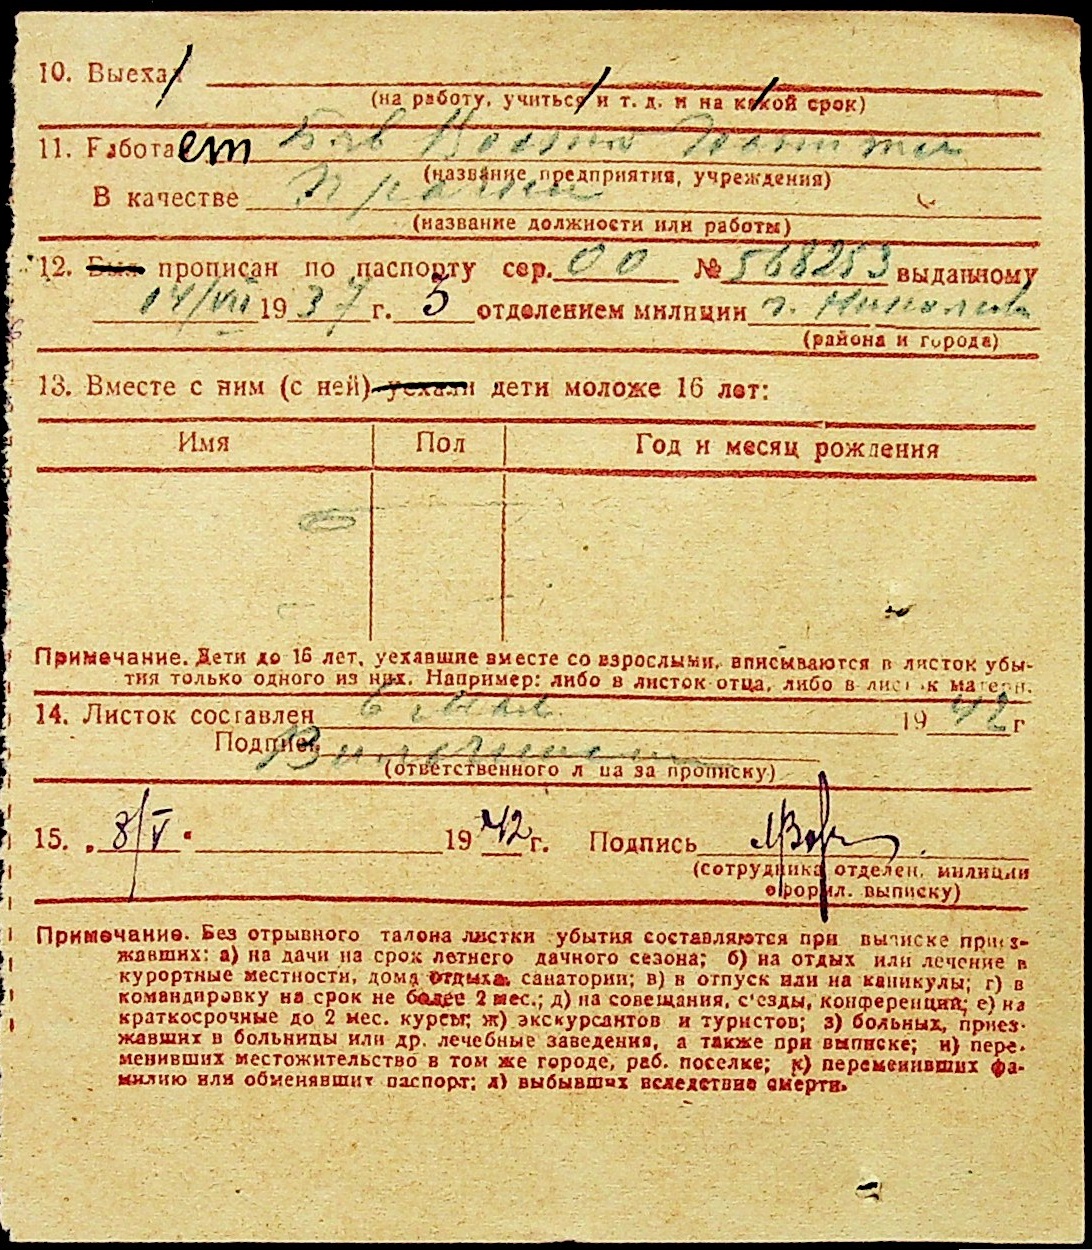 10. Выехал
(на работу, учиться и т. д. и на какой срок)
11. Работает
(название предприятия, учреждения)
В качестве
(название должности или работы)
12. Был прописан по паспорту сер. 00 № 568253 выданному
14/VII 1937 г. 5 отделением милиции г. Николаев
(района и города)
13. Вместе с ним (с ней) уехали дети моложе 16 лет:
Имя Пол Год и месяц рождения
Примечание. Дети до 16 лет, уехавшие вместе со взрослыми, вписываются в листок убы-
тия только одного из них. Например: либо в листок отца, либо в листок матери.
14. Листок составлен 6 мая 1942 г
Подпись
(ответственного лица за прописку)
15. „8/V“ 1942 г. Подпись
(сотрудника отделен. милиции
оформил. выписку)
Примечание. Без отрывного талона листки убытия составляются при выписке приез-
жавших: а) на дачи на срок летнего дачного сезона; б) на отдых или лечение в
курортные местности, дома отдыха, санатории; в) в отпуск или на каникулы; г) в
командировку на срок не более 2 мес.; д) на совещания, с'езды, конференции; е) на
краткосрочные до 2 мес. курсы; ж) экскурсантов и туристов; з) больных, приез-
жавших в больницы или др. лечебные заведения, а также при выписке; и) пере-
менивших местожительство в том же городе, раб. поселке; к) переменивших фа-
милию или обменявших паспорт; л) выбывших вследствие смерти.